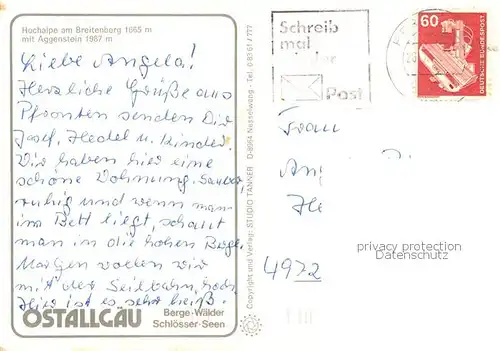 Hochalpe am Breitenberg 1665 m
mit Aggenstein 1987 m
Liebe Angela!
Herzliche Grüße aus
Pfronten senden Dir
Josef, Hedel u. Kinder.
Wir haben hier eine
schöne Wohnung. Sauber,
ruhig und wenn man
im Bett liegt, schaut
man in die hohen Berge.
Morgen wollen wir
mit der Seilbahn hoch.
Hier ist es sehr heiß.
OSTALLGÄU
Berge-Wälder
Schlösser-Seen
Copyright und Verlag: STUDIO TANNER D-8964 Nesselwang · Tel. 08361/777
Schreib
mal
Post
60
DEUTSCHE BUNDESPOST
Frau
An
He
privacy protection
Datenschutz
4972